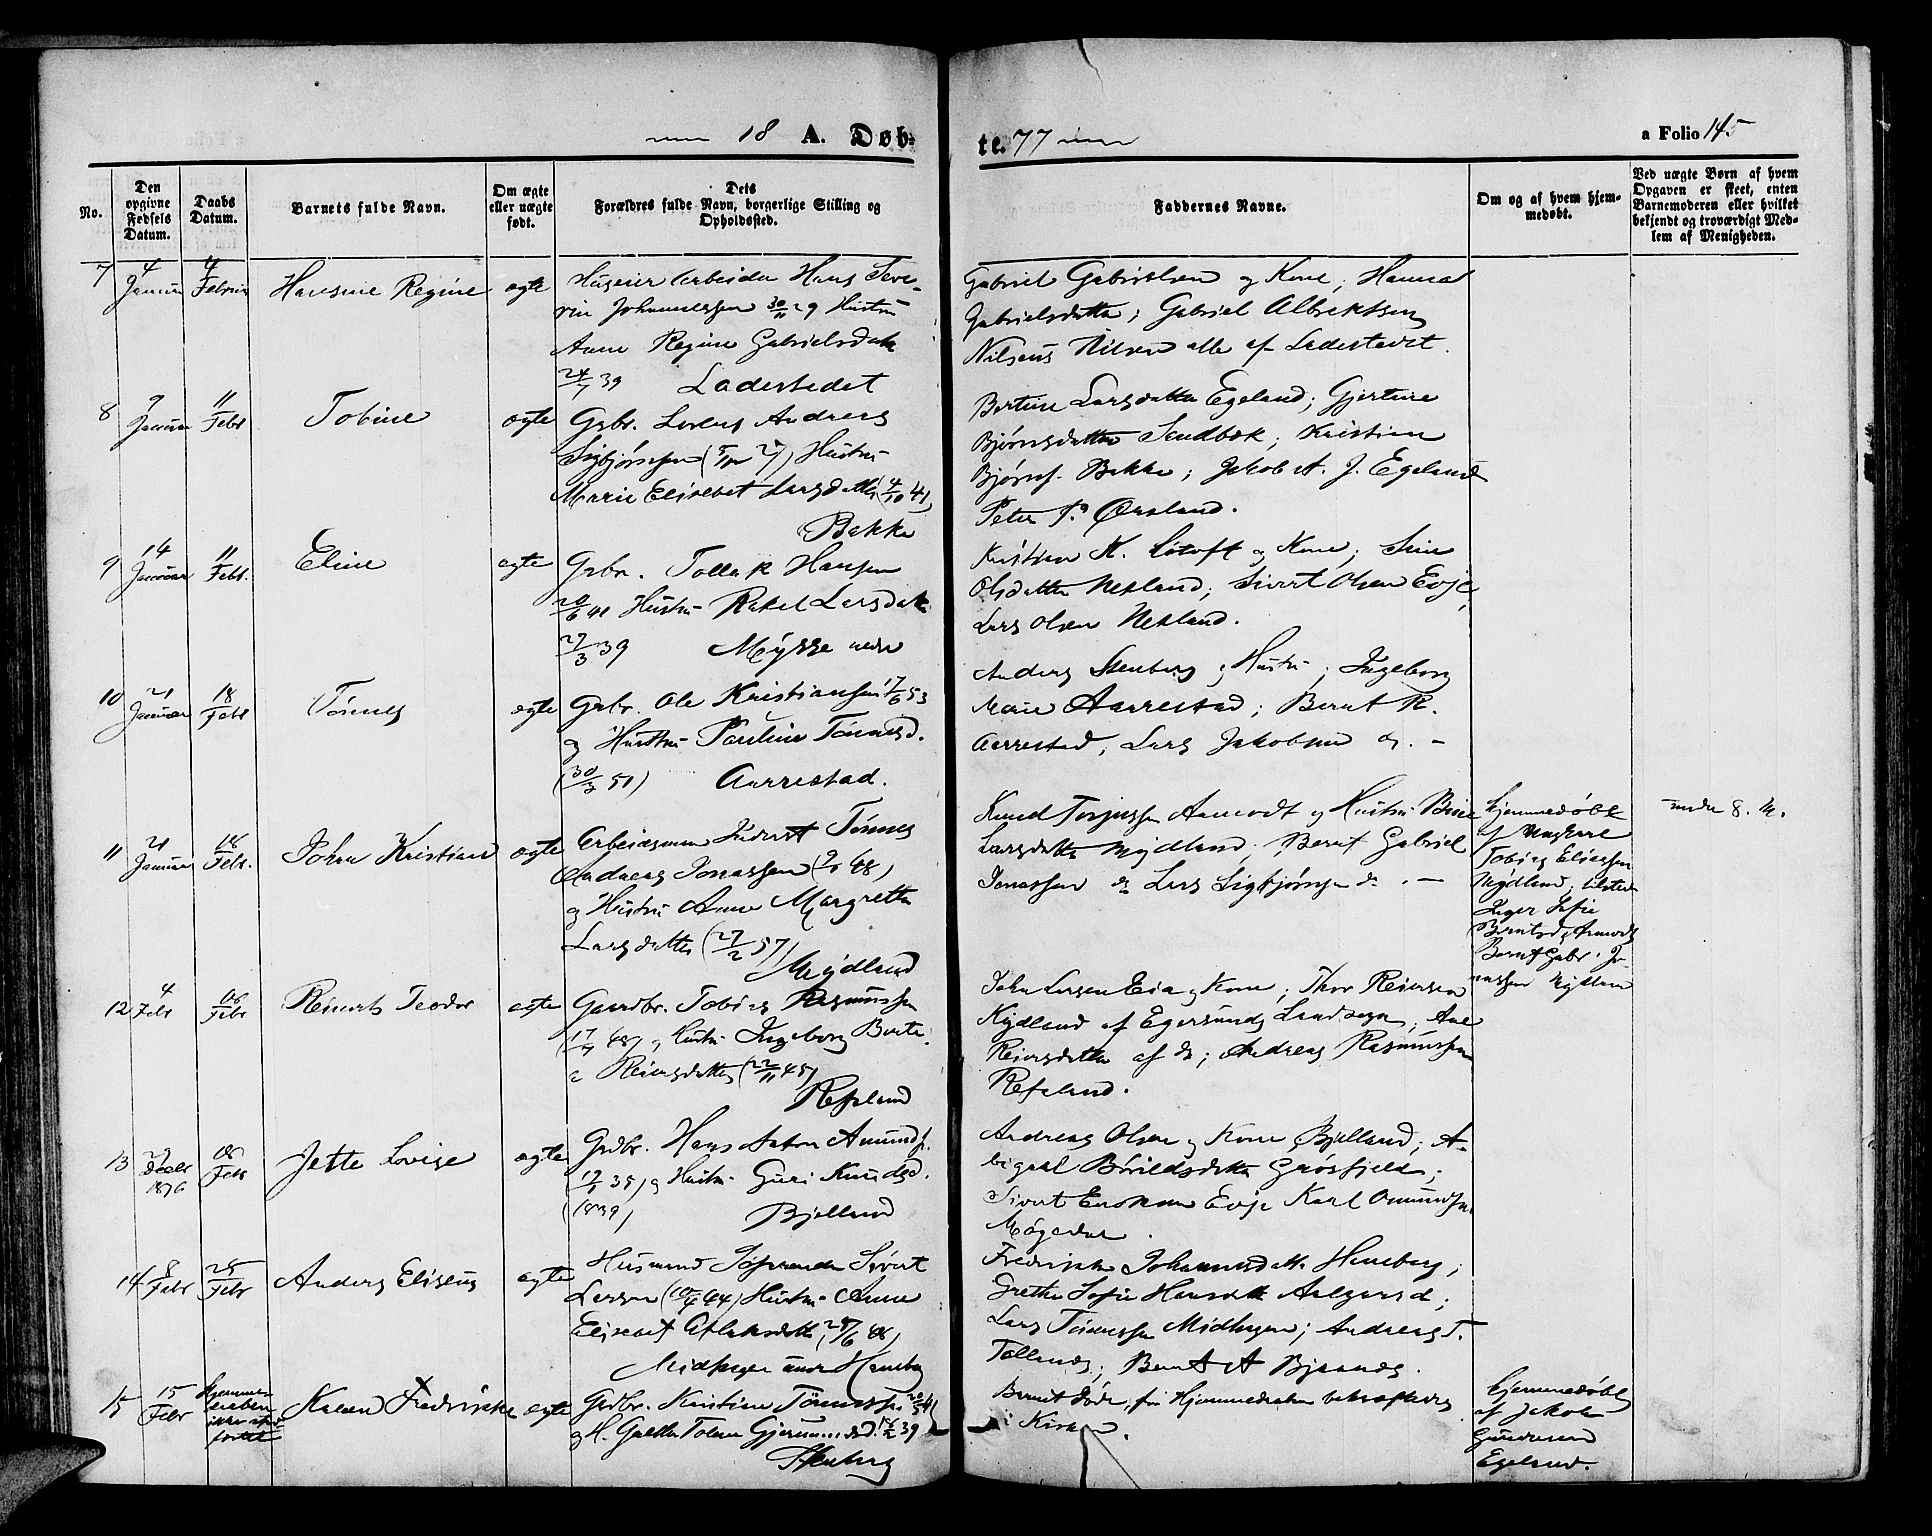 18 A. Døb-
te. 77
a Folio 145
No.
Den opgivne Fødsels Datum.
Daabs Datum.
Barnets fulde Navn.
Om ægte eller uægte født.
Dets Forældres fulde Navn, borgerlige Stilling og Opholdssted.
Faddernes Navne.
Om og af hvem hjemmedøbt.
Ved uægte Børn af hvem Opgaven er skeet, enten Barnemoderen eller hvilket bekjendt og troværdigt Medlem af Menigheden.
7
4 Januar
4 Februar
Hansine Regine
ægte
Huseier Arbeider Hans Seve-
rin Johannessen 30/11 29 Hustru
Anne Regine Gabrielsdatt
24/7 39 Ladestedet
Gabriel Gabrielsen og Kone; Hanna
Gabrielsdatter; Gabriel Albrektsen
Nilsen alle af Ladestedet.
8
9 Januar
11 Febr
Tobine
ægte
Grbr. Lorens Andreas
Sigbjørnsen Hustru
Marie Elisebet Larsdatter (4/10 41)
Bakke
Bertine Larsdatter Egeland; Gjertine
Bjørnsdatter Sandbæk; Kristian
Bjørns. Bakke; Jakob A. J. Egeland
Peter P. Ørsland.
9
14 Januar
11 Febr.
Eline
ægte
Grbr. Tollak Hansen
20/6 41 Hustru Rakel Larsdatt
27/3 39 Mysse nedre
Kristian K. og Kone; Sine
Olsdatter Nesland; Sivert Olsen Evje,
Lars Olsen Nesland.
10
21 Januar
18 Febr
Tønnes
ægte
Grbr. Ole Kristiansen 17/6 53
og Hustru Pauline Tønnesd.
(30/3 51) Aarrestad.
Anders Stenberg og Hustru; Ingeborg
Marie Aarrestad; Bernt R.
Aarrestad; Lars Jakobsen do. –
11
21 Januar
18 Febr.
Johan Kristian
ægte
Arbeidsmand Inderst Tønnes
Andreas Jonassen
og Hustru Anne Margrethe
Larsdatter (27/2 57)
Mydland
Knud Torjussen Aamodt og Hustru Bine
Larsdatter Mydland; Bernt Gabriel
Jonassen do Lars Sigbjørnsen do. –
hjemmedøbt
af Ungkarl
Tobias Eliassen
Mydland; tilstede
Inger Sofie
Berntsd. Aamodt
Bernt Gabr. Jo-
nassen Mydland
under 8. M.
12
4 Febr
18 Febr
Reinert Teodor
ægte
Gaardbr. Tobias Rasmussen
og Hustru Ingeborg Berte
Reiersdatter (22/11 45)
Refsland
John Larsen Eia og Kone; Thor Reiersen
Kydland af Egersunds Landsogn; Ane
Reiersdatter af do; Andreas Rasmussen
Refsland.
13
21 Decbr 1876
18 Febr
Jette Lovise
ægte
Grdbr. Hans Anton Amunds.
Hustru Guri Knudsd.
(1839) Bjelland
Andreas Olsen og Kone Bjelland; A-
bigael Grøsfjeld;
Sivert Enoksen Evje Karl Omundsen
Møgedal.
14
8 Febr
25 Febr
Anders Eliseus
ægte
Husmand Sivert
Larsen (10/4 44) Hustru Anne
Elisebet Aslaksdatt
Midhagen under Haneberg
Fredrikke Johannesdatt. Haneberg;
Grethe Sofie Hansdatt Aalgaard;
Lars Tønnessen Midhagen; Andreas T.
Tellands; Bernt A Bjaanes.
15
15 Febr
Karen Fredrikke
ægte
Grdbr. Kristian Tønnessen
og H. Grethe Tolene
Stenberg
Barnet døde før Hjemmedaaben bekræftedes
i Kirken.
hjemmedøbt
af Jakob
Gundersen
Egeland.